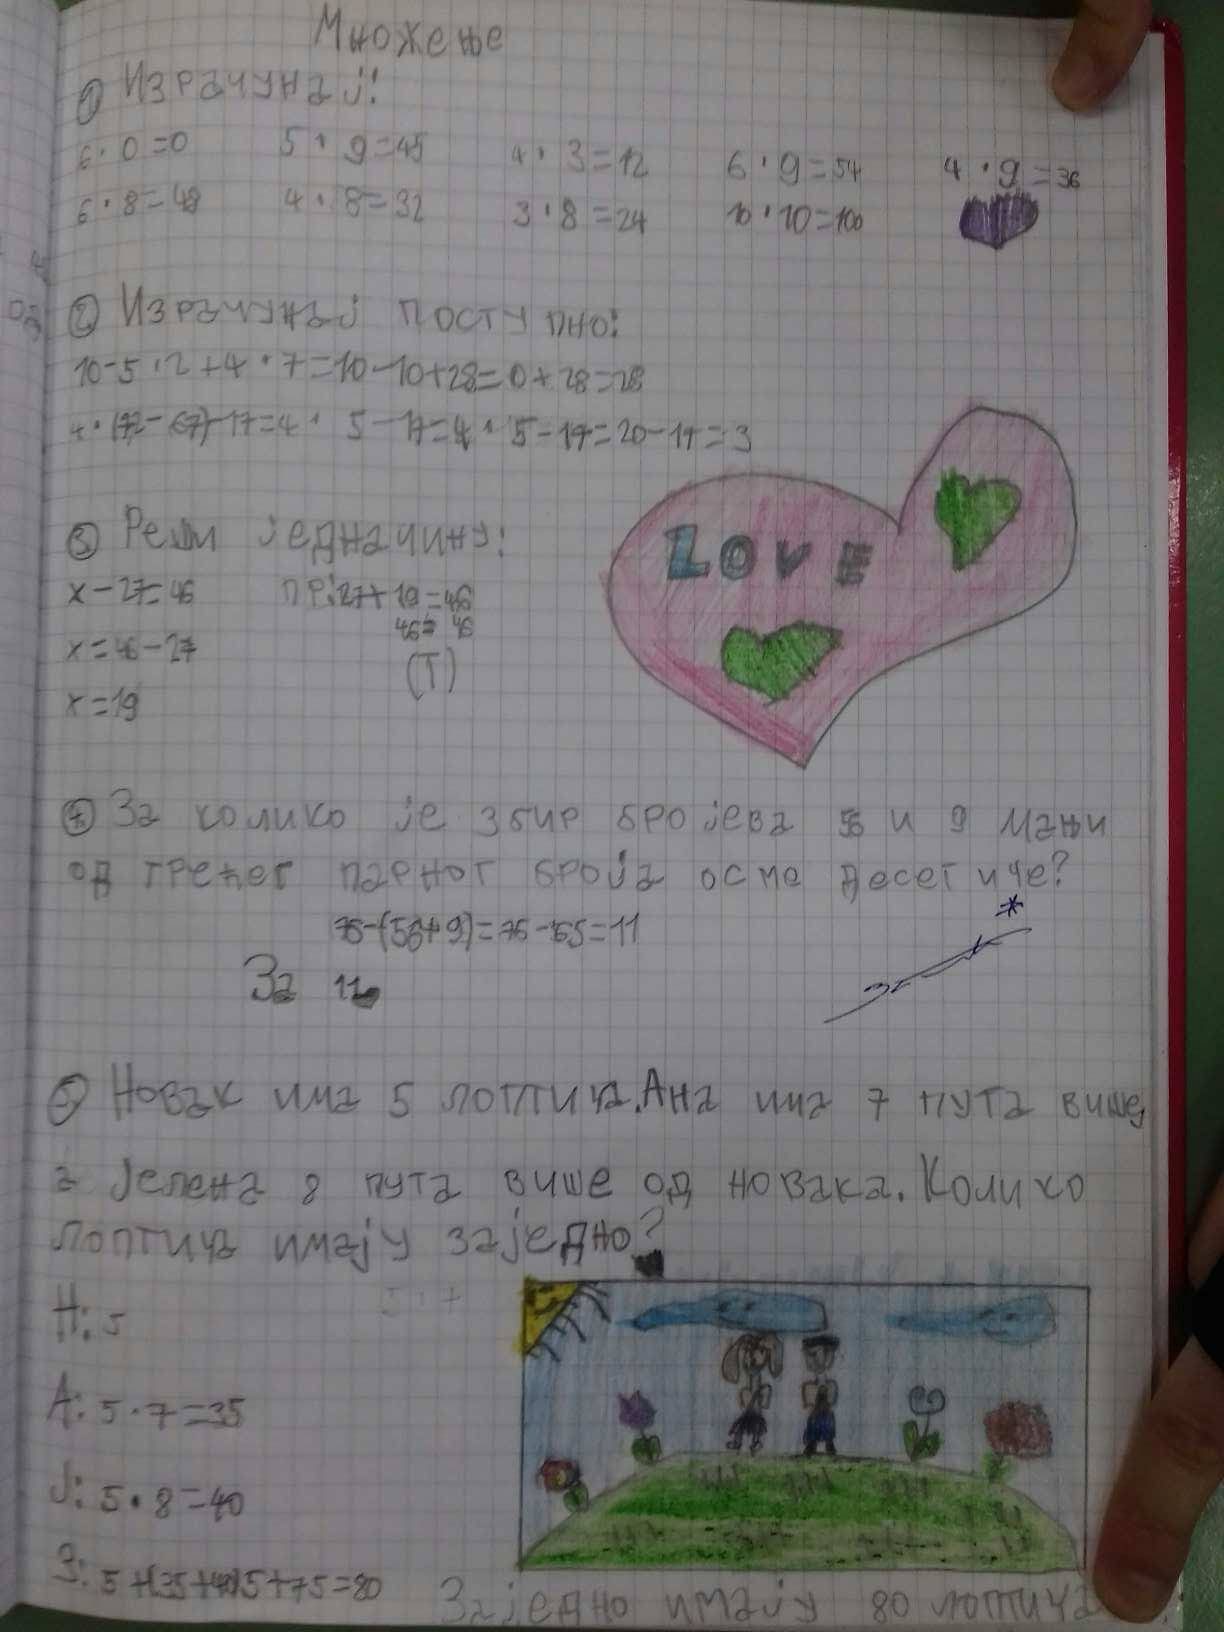 Множење
① Израчунај!
6·0=0 5·9=45 4·3=12 6·9=54 4·9=36
6·8=48 4·8=32 3·8=24 10·10=100
② Израчунај поступно:
10-5·2+4·7=10-10+28=0+28=28
4·(72-67)-17=4·5-17=4·5-17=20-17=3
LOVE
③ Реши једначину:
x-27=46 пр:27+19=46
x=46-27 46=46
x=19 (Т)
④ За колико је збир бројева 56 и 9 мањи
од трећег парног броја осме десетице?
76-(56+9)=76-65=11
За 11
⑤ Новак има 5 лоптица. Ана има 7 пута више,
а Јелена 8 пута више од новака. Колико
лоптица имају заједно?
Н: 5
А: 5·7=35
Ј: 5·8=40
З: 5+(35+40)5+75=80
Заједно имају 80 лоптица